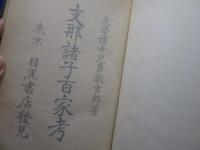 文學博士兒島獻吉郎著
支那諸子百家考
東京 目黑書店發兌